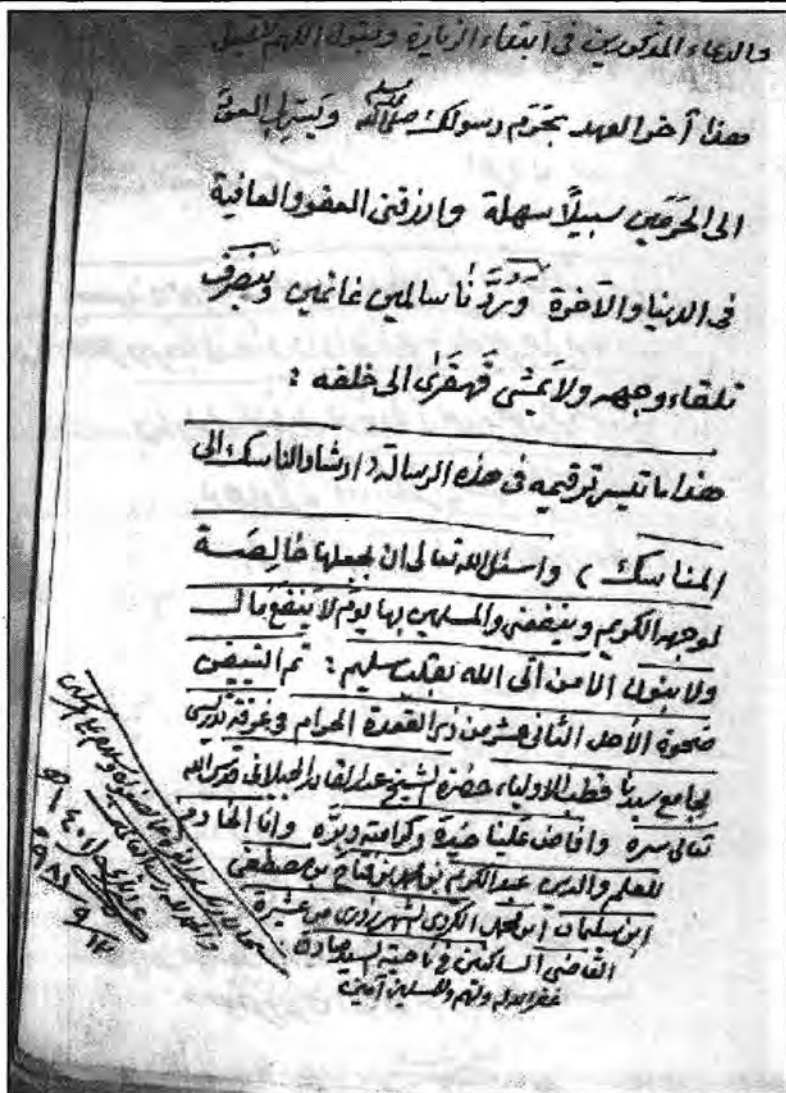 والدعاء المذكورين فى ابتداء الزيارة ويقول اللهم لاتجعل
هذا آخر العهد بحَرَم رسولك صلى الله عليه وسلم ويَسِّرلى العودَ
الى الحَرَمَينِ سبيلًا سهلة وارزقنى العفو والعافية
فى الدنيا والآخرة وَرُدَّنا سالمين غانمين وينصرف
تلقاء وجهه ولا يَمْشِى قَهقَرٰى الى خلفه :
هذا ما تيسر ترقيمه فى هذه الرسالة (ارشاد الناسك الى
المناسك ) واسئل الله تعالى ان يجعلها خالِصَة
لوجهه الكريم وينفعنى والمسلمين بها يَوْم لا يَنْفَع مَالٌ
ولا بنون الّا من اتَى الله بقلب سليم : تم التبييض
ضحوة الأحد الثانى عشر من ذى القعدة الحرام فى غرفة تدريسى
بجامع سيدنا قطب الاولياء حضرة الشيخ عبدالقادر الجيلانى قدس الله
تعالى سره وافاض علينا خيره وكرامته وبرّه وانا الخادم
للعلم والدين عبد الكريم بن محمد بن فتاح بن مصطفى
ابن سلمان ابن محمد الكردى الشهرزورى من عشيرة
القاضى الساكنين فى ناحية السيد صادق
غفر الله له ولهم وللمسلمين آمين
سبحان ربك رب العزة عما يصفون وسلام على المرسلين
والحمد لله رب العالمين
١٤٠١ هـ
١٣/٩/٩٨١